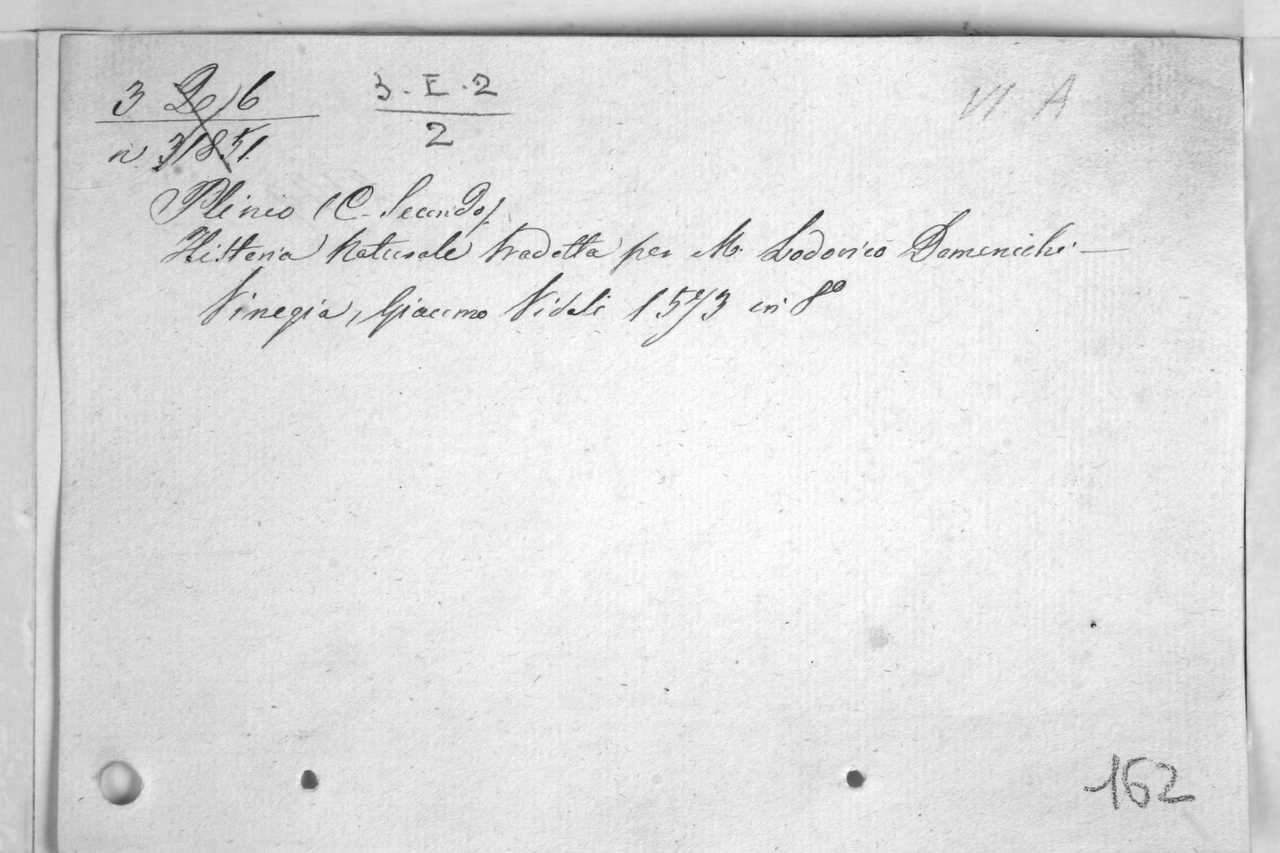 3 2e, 6
n. 31851.
3 . E . 2
2
VI A
Plinio (C. Secondo)
Historia Naturale tradotta per M. Lodovico Domenichi -
Vinegia, Giacomo Vidali 1573 in 8º
162